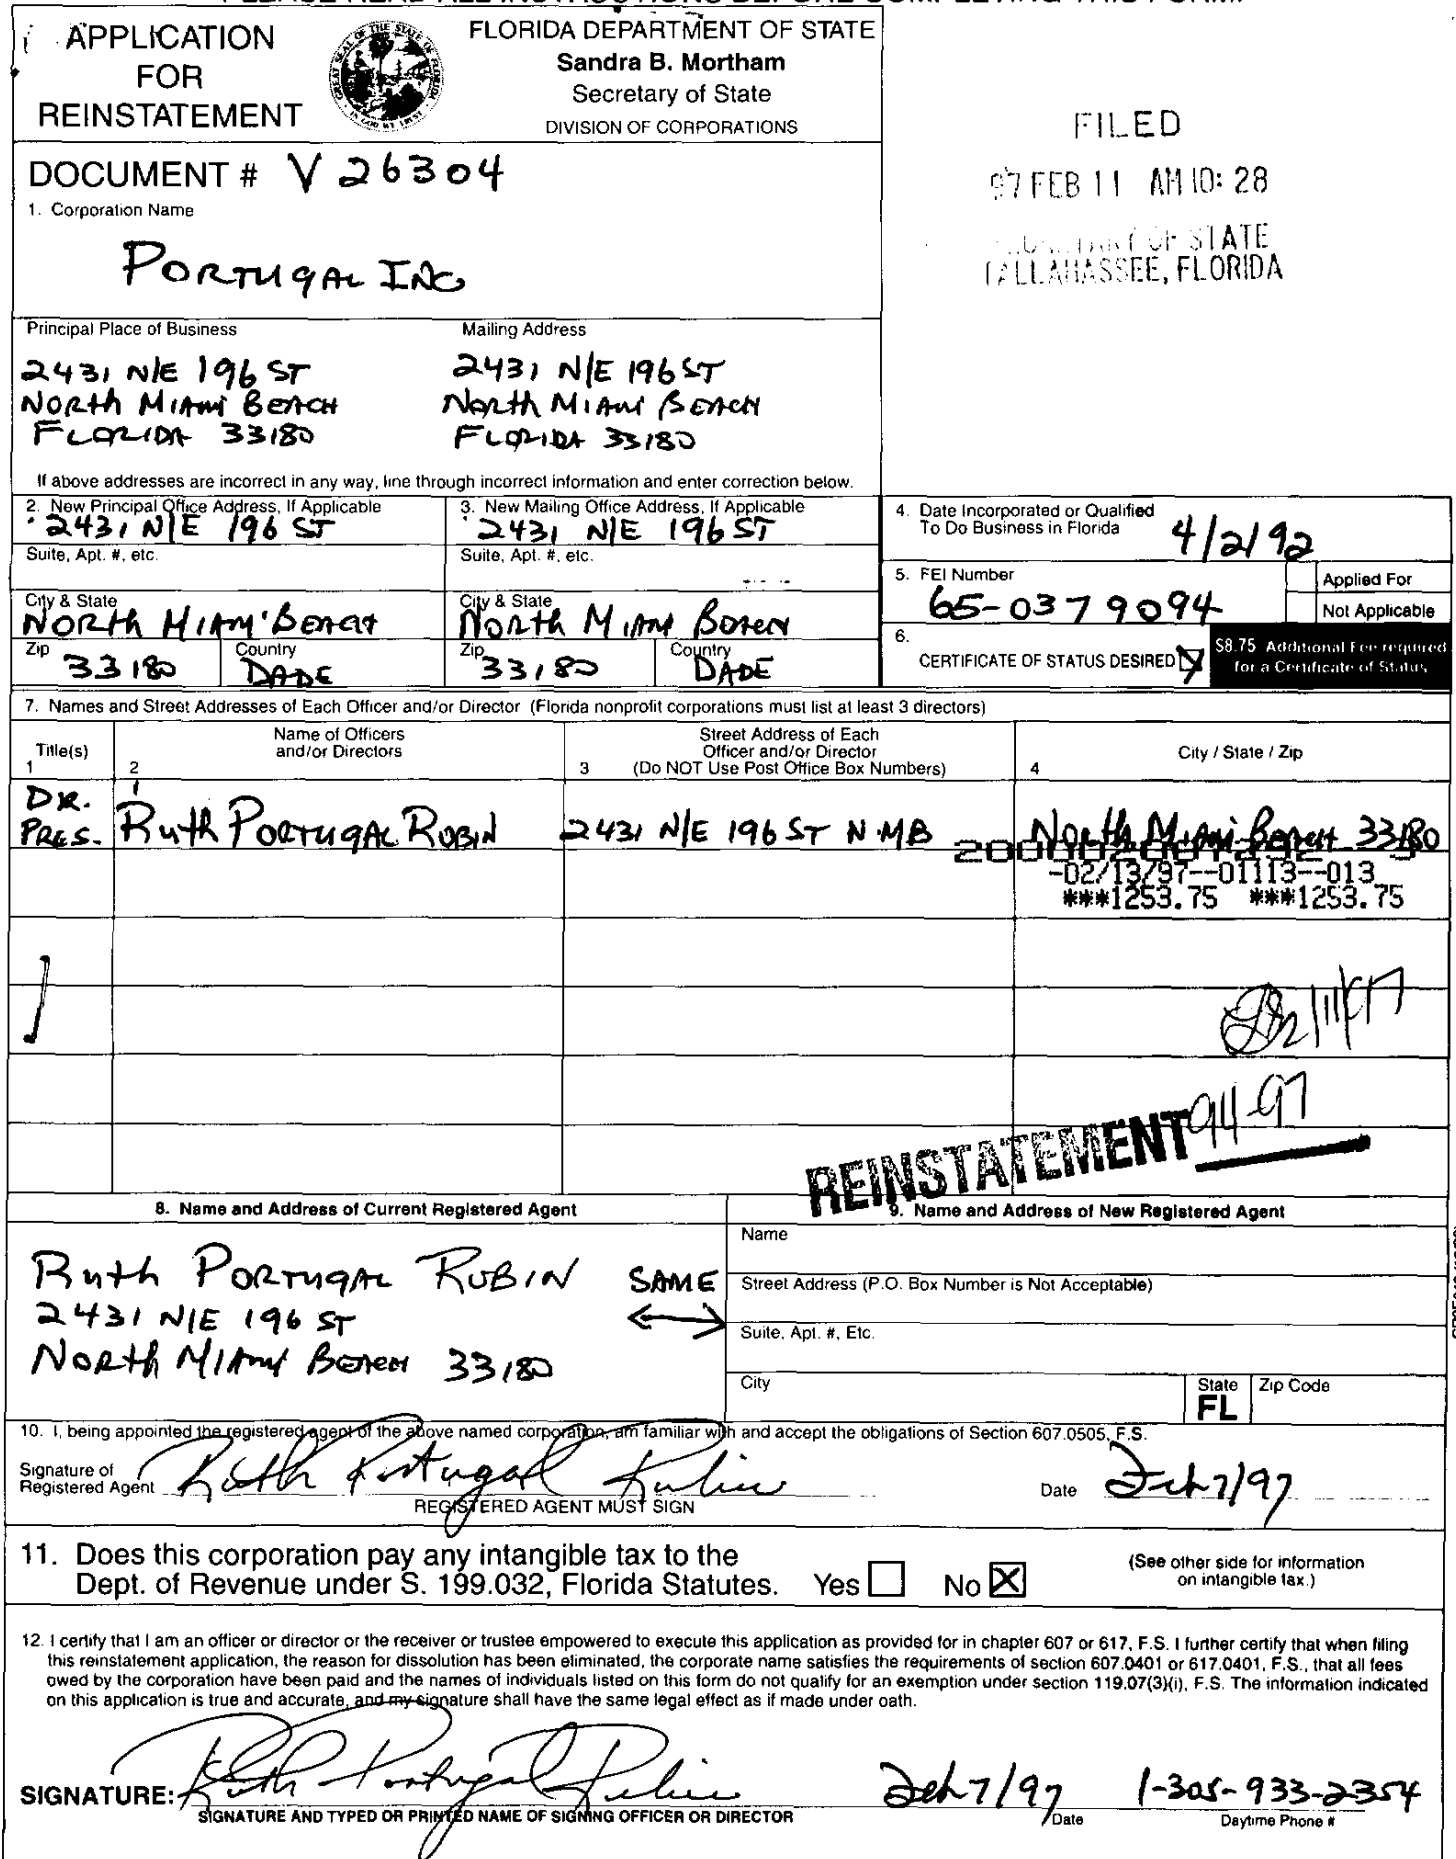 PLEASE READ ALL INSTRUCTIONS BEFORE COMPLETING THIS FORM.
APPLICATION
FOR
REINSTATEMENT
FLORIDA DEPARTMENT OF STATE
Sandra B. Mortham
Secretary of State
DIVISION OF CORPORATIONS
FILED
97 FEB 11 AM 10: 28
SECRETARY OF STATE
TALLAHASSEE, FLORIDA
DOCUMENT # V26304
1. Corporation Name
PORTUGAL INC
Principal Place of Business
2431 N/E 196 ST
NORTH MIAMI BEACH
FLORIDA 33180
Mailing Address
2431 N/E 196 ST
North MIAMI BEACH
FLORIDA 33180
If above addresses are incorrect in any way, line through incorrect information and enter correction below.
2. New Principal Office Address, If Applicable
2431 N/E 196 ST
Suite, Apt. #, etc.
City & State
NORTH MIAMI BEACH
Zip 33180
Country DADE
3. New Mailing Office Address, If Applicable
2431 N/E 196 ST
Suite, Apt. #, etc.
City & State
NORTH MIAMI BEACH
Zip 33180
Country DADE
4. Date Incorporated or Qualified
To Do Business in Florida 4/2/92
5. FEI Number
65-0379094
Applied For
Not Applicable
6.
CERTIFICATE OF STATUS DESIRED
$8.75 Additional Fee required
for a Certificate of Status
7. Names and Street Addresses of Each Officer and/or Director (Florida nonprofit corporations must list at least 3 directors)
Title(s)
1
Name of Officers
and/or Directors
2
Street Address of Each
Officer and/or Director
3 (Do NOT Use Post Office Box Numbers)
City / State / Zip
4
DIR.
PRES. Ruth PORTUGAL ROBIN 2431 N/E 196 ST N.MB North Miami Beach 33180
-02/13/97--01113--013
***1253.75 ***1253.75
REINSTATEMENT 94-97
8. Name and Address of Current Registered Agent
Ruth PORTUGAL RUBIN
2431 N/E 196 ST
NORTH MIAMI BEACH 33180
SAME
9. Name and Address of New Registered Agent
Name
Street Address (P.O. Box Number is Not Acceptable)
Suite, Apt. #, Etc.
City
State
FL
Zip Code
10. I, being appointed the registered agent of the above named corporation, am familiar with and accept the obligations of Section 607.0505, F.S.
Signature of
Registered Agent Ruth Portugal Rubin
REGISTERED AGENT MUST SIGN
Date Feb 7/97
11. Does this corporation pay any intangible tax to the
Dept. of Revenue under S. 199.032, Florida Statutes. Yes No X
(See other side for information
on intangible tax.)
12. I certify that I am an officer or director or the receiver or trustee empowered to execute this application as provided for in chapter 607 or 617, F.S. I further certify that when filing
this reinstatement application, the reason for dissolution has been eliminated, the corporate name satisfies the requirements of section 607.0401 or 617.0401, F.S., that all fees
owed by the corporation have been paid and the names of individuals listed on this form do not qualify for an exemption under section 119.07(3)(i), F.S. The information indicated
on this application is true and accurate, and my signature shall have the same legal effect as if made under oath.
SIGNATURE: Ruth Portugal Rubin Feb 7/97 1-305-933-2354
SIGNATURE AND TYPED OR PRINTED NAME OF SIGNING OFFICER OR DIRECTOR
Date
Daytime Phone #